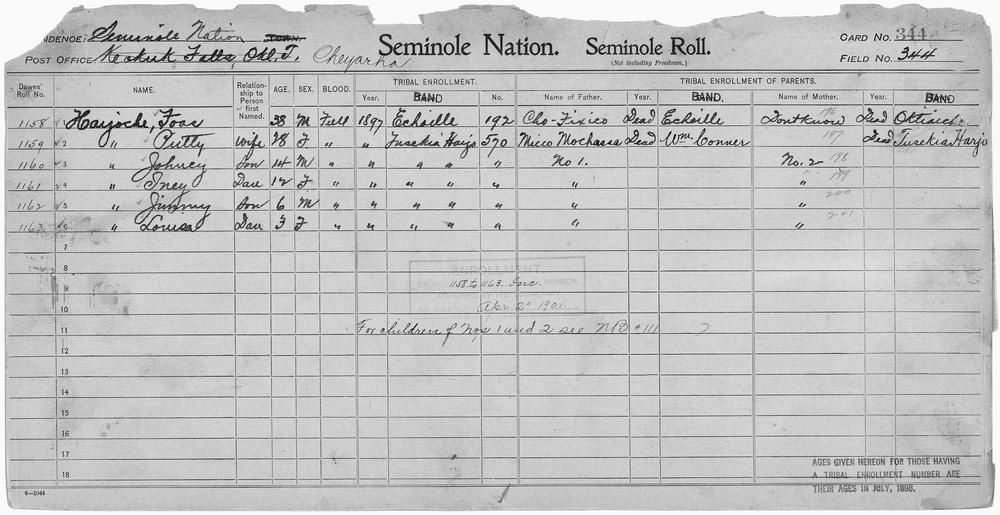 IDENCE: Seminole Nation TOWN.
POST OFFICE Keokuk Falls, Okl. T. Cheyarha
Seminole Nation. Seminole Roll.
(Not including Freedmen.)
CARD NO. 344
FIELD NO. 344
Dawes' Roll No. NAME. Relationship to Person first Named. AGE. SEX. BLOOD. TRIBAL ENROLLMENT. TRIBAL ENROLLMENT OF PARENTS.
Year. BAND No. Name of Father. Year. BAND. Name of Mother. Year. BAND
1158 1 Harjoche, Foas 38 M Full 1897 Echoille 192 Cho-Fixico Dead Echoille Dont know 196 Dead
1159 2 " Putty Wife 28 F " " Tusekia Harjo 570 Micco Mochassa Dead Wm. Conner 197 Dead Tusekia Harjo
1160 3 " Johney Son 14 M " " " " " No 1. No. 2 198
1161 4 " Iney Dau 12 F " " " " " " " 199
1162 5 " Jimmy Son 6 M " " " " " " " 200
1163 6 " Louisa Dau 3 F " " " " " " " 201
7
8
ENROLLMENT
9 1158 to 1163. Inc. HEREON
10 Apr 2" 1901.
11 For children of Nos 1 and 2 see NB #111
12
13
14
15
16
17
18
AGES GIVEN HEREON FOR THOSE HAVING
A TRIBAL ENROLLMENT NUMBER ARE
THEIR AGES IN JULY, 1898.
6—1044